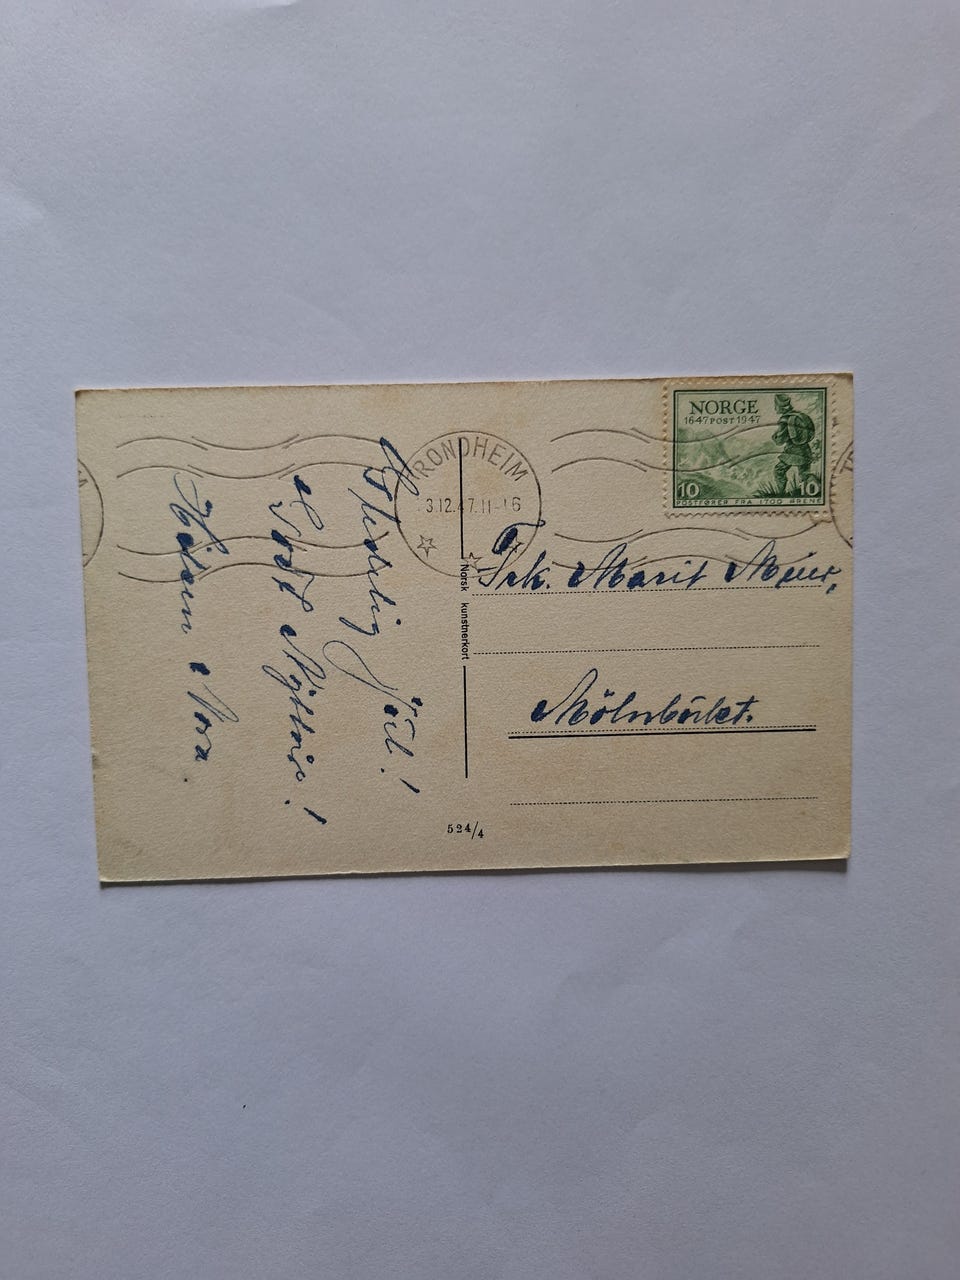 Hjertelig Jül!
& Godt Nyttår!
Hilsen Nora.
TRONDHEIM
3.12.47.11-16
NORGE
1647 POST 1947
10 10
POSTFØRER FRA 1700 ÅRENE
Norsk kunstnerkort
Frk. Marit Meier,
Mölnbüket.
524/4